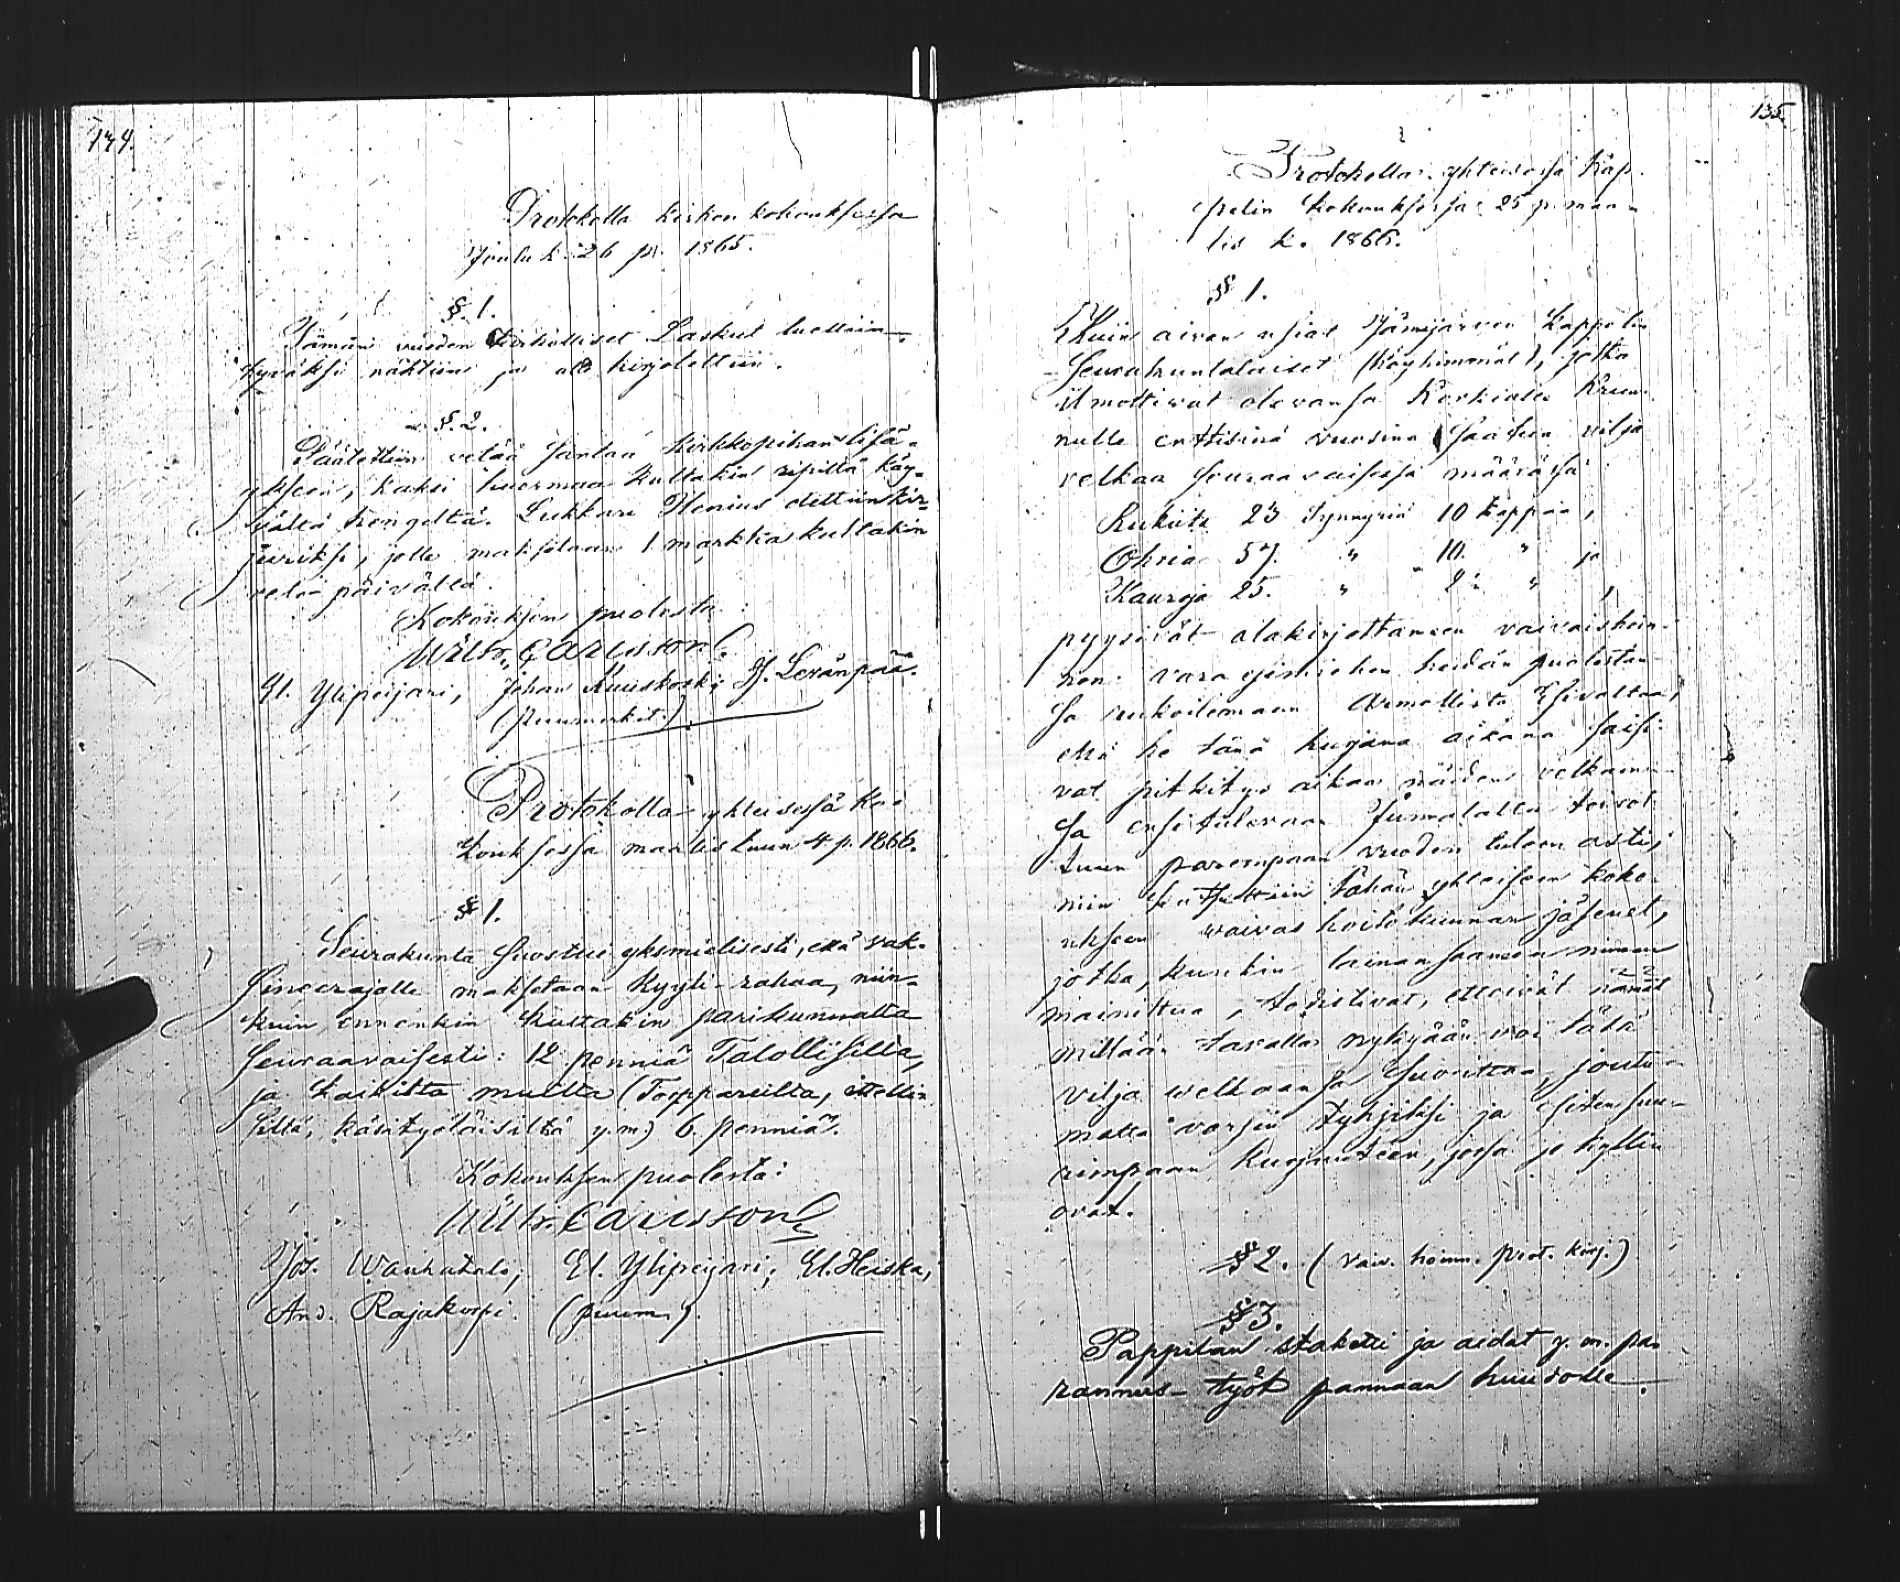 134.
Protokolla kirkon kokouksessa
Joulu k. 26 p. 1865.
§. 1.
Tämän vuoden kirkolliset Laskut luettiin,
hyväksi nähtiin ja alle kirjotettiin.
§. 2.
Päätettiin vetää santaa kirkkopihan lisä-
ykseen, kaksi kuormaa kultakin ripillä käy-
vältä hengeltä. Lukkari Henius otettiin kir-
juriksi, jolle maksetaan 1 markka kultakin
vetä päivältä.
Kokouksen puolesta:
Wilh. Carlsson.
El. Ylipeijari, Johan Kuuskoski, H. Levänpää.
(puumerkit.)
Protokolla yhteisessä ko-
kouksessa maaliskuun 4 p. 1866.
§ 1.
Seurakunta suostui yksmielisesti, että rak.
sineerajalle maksetaan kyyti-rahaa, niin-
kuin ennenkin kustakin parikunnalta
seuraavaisesti: 12 penniä Talollisilta,
ja kaikilta muilta (Torpparilta, itselli-
siltä, käsityöläisiltä y.m.) 6. penniä.
Kokouksen puolesta:
Wilh. Carlsson
Jos. Wanhatalo, El. Ylipeijari, El. Heiska,
And. Rajakorpi. (puum.).
135.
Protokolla yhteisessä kap-
pelin kokouksessa 25 p. maa-
lis k. 1866.
§ 1.
Kuin aivan usiat Jämijärven kappelin
Seurakuntalaiset (köyhimmät), jotka
ilmottivat olevansa Korkialle kruu-
nulle enttisinä vuosina saatua vilja
velkaa seuraavaisessa määrässä
Rukiita 23 tynnyriä 10 kappaa,
Ohria 57. " 10. " ja
Kauroja 25. " 2 " ,
pyysivät alakirjottaneen vaivaishoin-
non varaesimiehen heidän puolestan-
sa rukoilemaan Armollista Esivaltaa,
että he tänä kurjana aikana saisi-
vat pitkitys aikaa näiden velkain-
sa ensitulevaan Jumalalta toivot-
tuun parempaan vuoden tuloon asti;
niin kutsuttiin tähän yhteiseen koko-
ukseen vaivas hoitokunnan jäsenet,
jotka, kunkin lainan saaneen nimen
mainittua, todistivat, etteivät nämät
millään tavalla nykyään voi tätä
vilja welkaansa suorittaa, joutu-
matta varsin tyhjiksi ja siten suu-
rimpaan kurjuuteen, jossa jo kyllin
ovat.
§ 2. (vaiv. hoinn. prot. kirj.)
§ 3.
Pappilan staketti ja aidat y.m. pa-
rannus-työt pannaan huudolle.